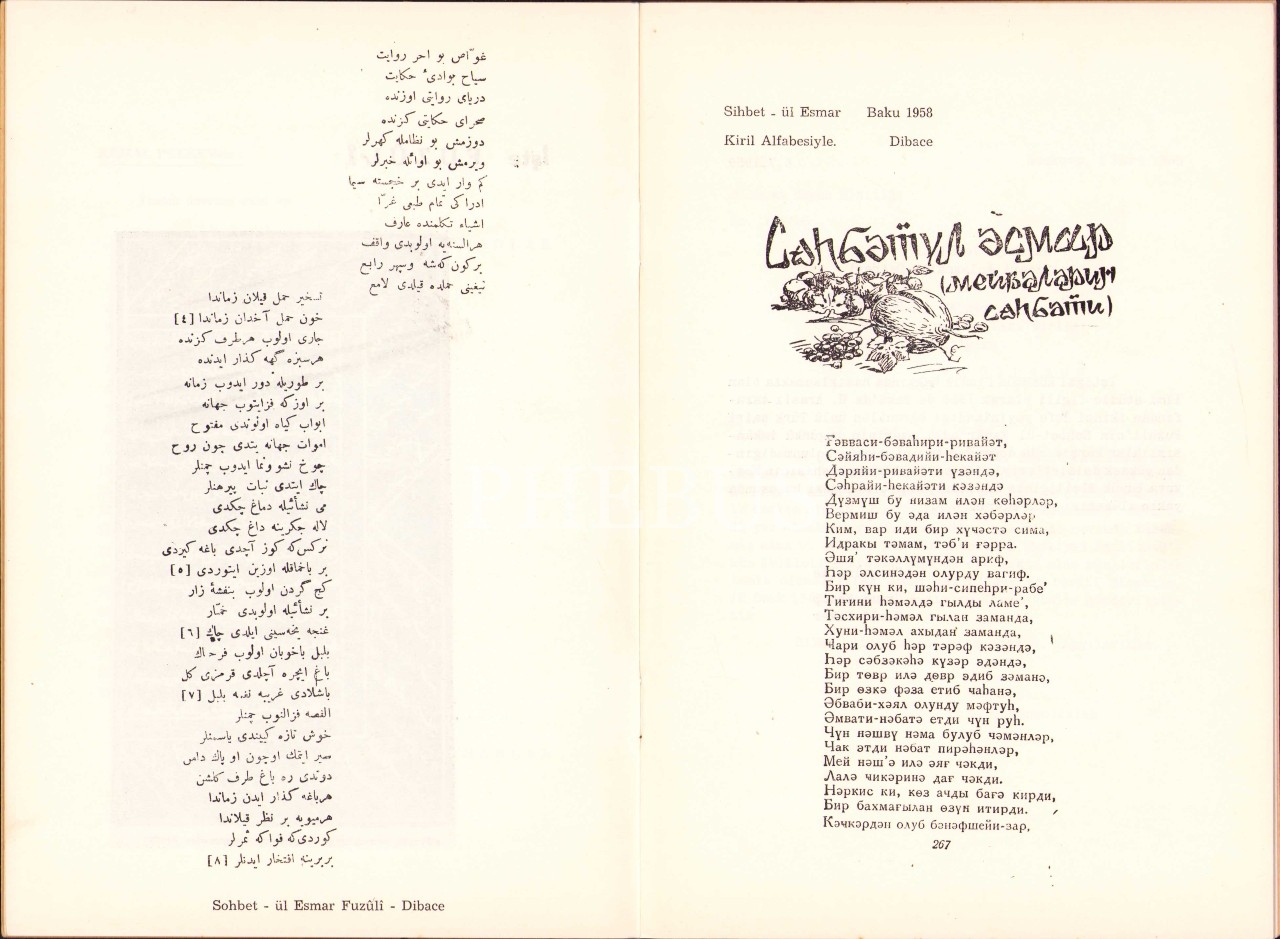 غوّاص بو احر روایت
سیاح بوادیٔ حکایت
دریای روایتی اوزنده
صحرای حکایتی کزنده
دوزمش بو نظامله کهرلر
ویرمش بو اوائله خبرلر
کم وار ایدی بر خجسته سیما
ادراکی تمام طبعی غرّا
اشیاء تکلمنده عارف
هرالسنه‌یه اولوبدی واقف
برکون که شه وسپهر رابع
تیغینی حملده قیلدی لامع
تسخیر حمل قیلان زماندا
خون حمل آخدان زماندا [٤]
جاری اولوب هرطرف کزنده
هرسبزه کهه کذار ایدنده
بر طوریله دور ایدوب زمانه
بر اوزکه فزایتوب جهانه
ابواب کیاه اولوندی مفتوح
اموات جهانه یتدی چون روح
چوخ نشو ونما ایدوب چمنلر
چاك ایتدی نبات پیرهنلر
می نشأئیله دماغ چکدی
لاله جکرینه داغ چکدی
نرکس که کوز آچدی باغه کیردی
بر باخماقله اوزین ایتوردی [٥]
کج گردن اولوب بنفشهٔ زار
بر نشأئیله اولوبدی خمّار
غنچه یخه‌سینی ایلدی چاك [٦]
بلبل باخوبان اولوب فرحناك
باغ ایچره آچلدی قرمزی کل
باشلادی غریبه نغمه بلبل [٧]
القصه فزالنوب چمنلر
خوش تازه کییندی یاسمنلر
سیر ایتمك اوچون او پاك دامن
دوندی ره باغ طرف کلشن
هرباغه کذار ایدن زماندا
هرمیویه بر نظر قیلاندا
کوردی که فواکه ثمرلر
بربرینه افتخار ایدنلر [٨]
Sohbet - ül Esmar Fuzûlî - Dibace
Sihbet - ül Esmar Baku 1958
Kiril Alfabesiyle. Dibace
Сәһбәтүл әсмар
(мејвәләрин
сәһбәти)
Гәвваси-бәваһири-ривайәт,
Сәйяһи-бәвадийи-һекайәт
Дәряйи-ривайәти үзәндә,
Сәһрайи-һекайәти кәзәндә
Дүзмүш бу низам илән көһәрләр,
Вермиш бу әда илән хәбәрләр
Ким, вар иди бир хүчәстә сима,
Идракы тәмам, тәб'и ғәрра.
Әшя' тәкәллүмүндән ариф,
Һәр әлсинәдән олурду вагиф.
Бир күн ки, шәһи-сипеһри-рабе'
Тиғини һәмәлдә гылды ламе',
Тәсхири-һәмәл гылан заманда,
Хуни-һәмәл ахыдан заманда,
Чари олуб һәр тәрәф кәзәндә,
Һәр сәбзәкәһә күзәр әдәндә,
Бир төвр илә дөвр әдиб зәманә,
Бир өзкә фәза етиб чаһанә,
Әбваби-хәял олунду мәфтуһ,
Әмвати-нәбатә етди чүн руһ.
Чүн нәшвү нәма булуб чәмәнләр,
Чак әтди нәбат пирәһәнләр,
Мей нәш'ә илә әяғ чәкди,
Лалә чикәринә дағ чәкди.
Нәркис ки, көз ачды бағә кирди,
Бир бахмағылан өзүн итирди.
Кәчкәрдән олуб бәнәфшейи-зар,
267